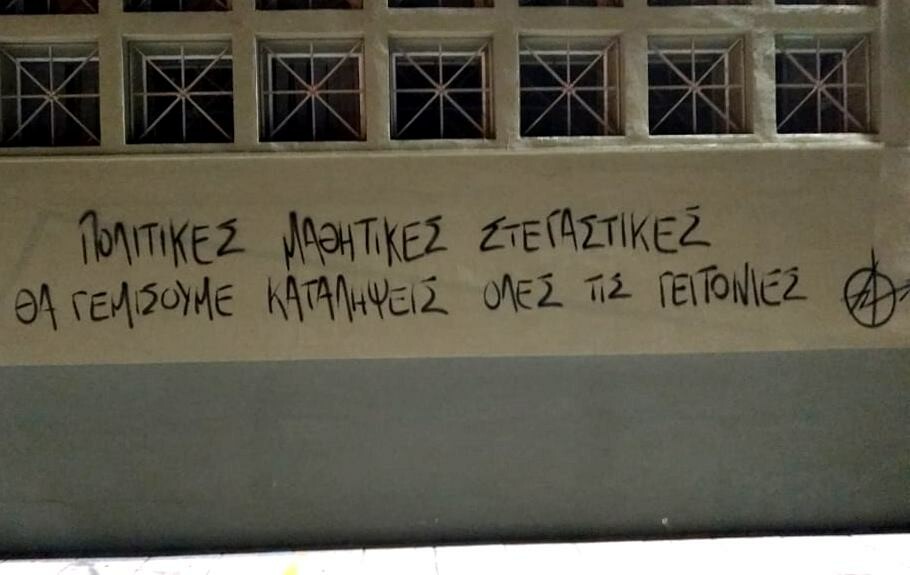 ΠΟΛΙΤΙΚΕΣ ΜΑΘΗΤΙΚΕΣ ΣΤΕΓΑΣΤΙΚΕΣ
ΘΑ ΓΕΜΙΣΟΥΜΕ ΚΑΤΑΛΗΨΕΙΣ ΟΛΕΣ ΤΙΣ ΓΕΙΤΟΝΙΕΣ